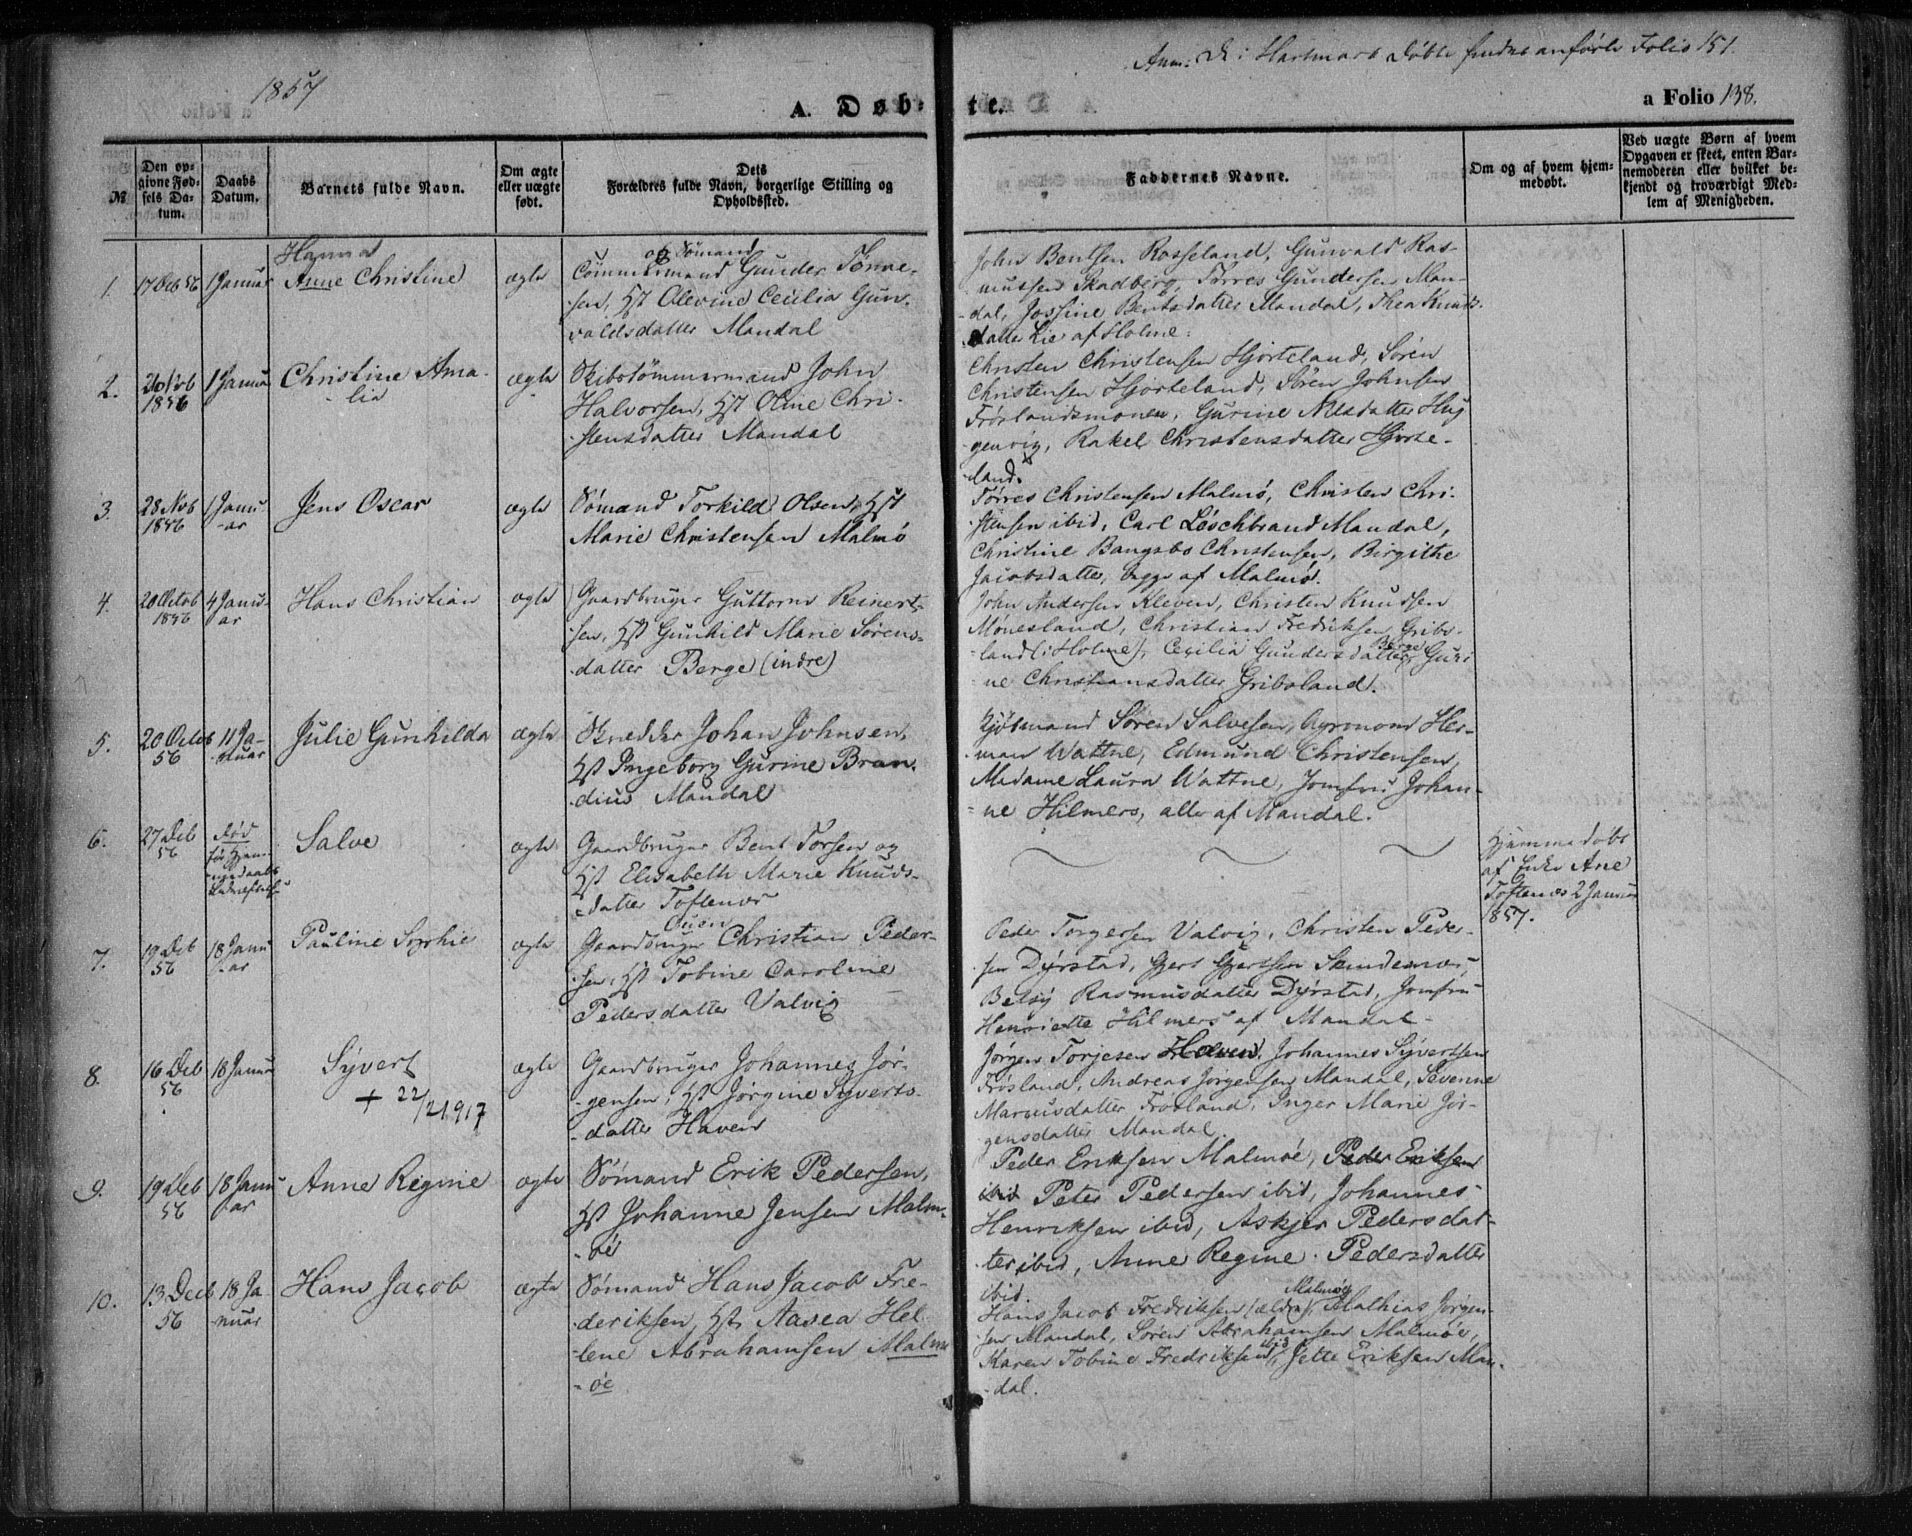 1857
Anm: De i Hartmark Døbte findes anførte Folio 151
A. Døbte.
a Folio 138.
№
Den opgivne Fødsels Datum.
Daabs Datum.
Barnets fulde Navn.
Om ægte eller uægte født.
Dets Forældres fulde Navn, borgerlige Stilling og Opholdssted.
Faddernes Navne.
Om og af hvem hjemmedøbt.
Ved uægte Børn af hvem Opgaven er skeet, enten Barnemoderen eller hvilket bekjendt og troværdigt Medlem af Menigheden.
1.
17 Deb 56
1 Januar
Hanna
Anne Christine
ægte
og Sømand
Gunder Tønne-
sen, Hst Olevine Cecilia Gun-
valdsdatter Mandal
John Bentsen Rosseland, Gunvald Ras-
mussen Skadberg, Tørres Gundersen Man-
dal, Jossine Bentsdatter Mandal, Thea Knuds-
datter Lie af Holme.
2.
1856
1 Januar
Christine Ama-
lia
ægte
Skibstømmermand John
Halvorsen, Hst Oline Chri-
stensdatter Mandal
Christen Christensen Hjorteland, Søren
Christensen Hjorteland, Søren Johnsen
Frøslandsmonen, Gurine Nilsdatter
Rakel Christensdatter Hjorte-
land.
3.
28 Nob
1856
1 Janu-
ar
Jens Oscar
ægte
Sømand Torkild Olsen, Hst
Marie Christensen Malmø
Tørres Christensen Malmø, Christen Chri-
stensen ibid, Carl Løschbrand Mandal,
Christine Bangsbo Christensen, Birgithe
Jacobsdatter, begge af Malmø.
4.
20 Octob
1856
4 Janu-
ar
Hans Christian
ægte
Gaardbruger Guttorm Reinert-
sen, Hst Gunhild Marie Sørens-
datter Berge (indre)
John Andersen Kleven, Christen Knudsen
Mønesland, Christian Fredriksen Gribs-
land (i Holme), Cecilia Gundersdatter Berge, Guri-
ne Christiansdatter Gribsland.
5.
20 Octob
56
11 Ja-
nuar
Julie Gunhilda
ægte
Snedker Johan Johnsen,
Hst Ingeborg Gurine Bran-
dius Mandal
Kjøbmand Søren Salvesen, Her-
man Wattne, Edmund Christensen,
Madame Laura Wattne, Jomfru Johan-
ne Hilmers, alle af Mandal.
6.
27 Deb
56
død
før Hjem-
medaabs
Bekræftelse
Salve
ægte
Gaardbruger Bent Torsen og
Hst Elisabeth Marie Knuds-
datter Toftenes
Hjemmedøbt
af Enke Ane
Toftenes 2 Januar
1857.
7.
19 Deb
56
18 Janu
ar
Pauline Sophie
ægte
Gaardbruger Christian Peder-
sen, Hst Tobine Caroline
Pedersdatter Valvig
Peder Torgersen Valvig, Christen Peder-
sen Dyrstad, Gjert Gjertsen
Betsy Rasmusdatter Dyrstad, Jomfru
Henriette Hilmers af Mandal.
8.
16 Deb
56
18 Januar
Syvert
+ 22/2 1917
ægte
Gaardbruger Johannes Jør-
gensen, Hst Jørgine Syverts-
datter Haven
Jørgen Torjesen Haven, Johannes Syvertsen
Frøsland, Andreas Jørgensen Mandal, Severine
Marcusdatter Frøsland, Inger Marie Jør-
gensdatter Mandal.
9.
19 Deb
56
18 Janu
ar
Anne Regine
ægte
Sømand Erik Pedersen,
Hst Johanne Jensen Malm-
øe
Peder Eriksen Malmøe, Peder Eriksen
ibid Peter Pedersen ibid, Johannes
Henriksen ibid, Askjer Pedersdat-
ter ibid, Anne Regine Pedersdatter
ibid.
10.
13 Deb
56
18 Ja-
nuar
Hans Jacob
ægte
Sømand Hans Jacob Fre-
deriksen, Hst, Aasea Hel-
lene Abrahamsen Malm-
øe
Hans Jacob Fredriksen (ældre) Malmøe, Mathias Jørgen-
sen Mandal, Søren Abrahamsen Malmøe,
Karen Tobine Fredriksen ibid, Jette Eriksen Man-
dal.